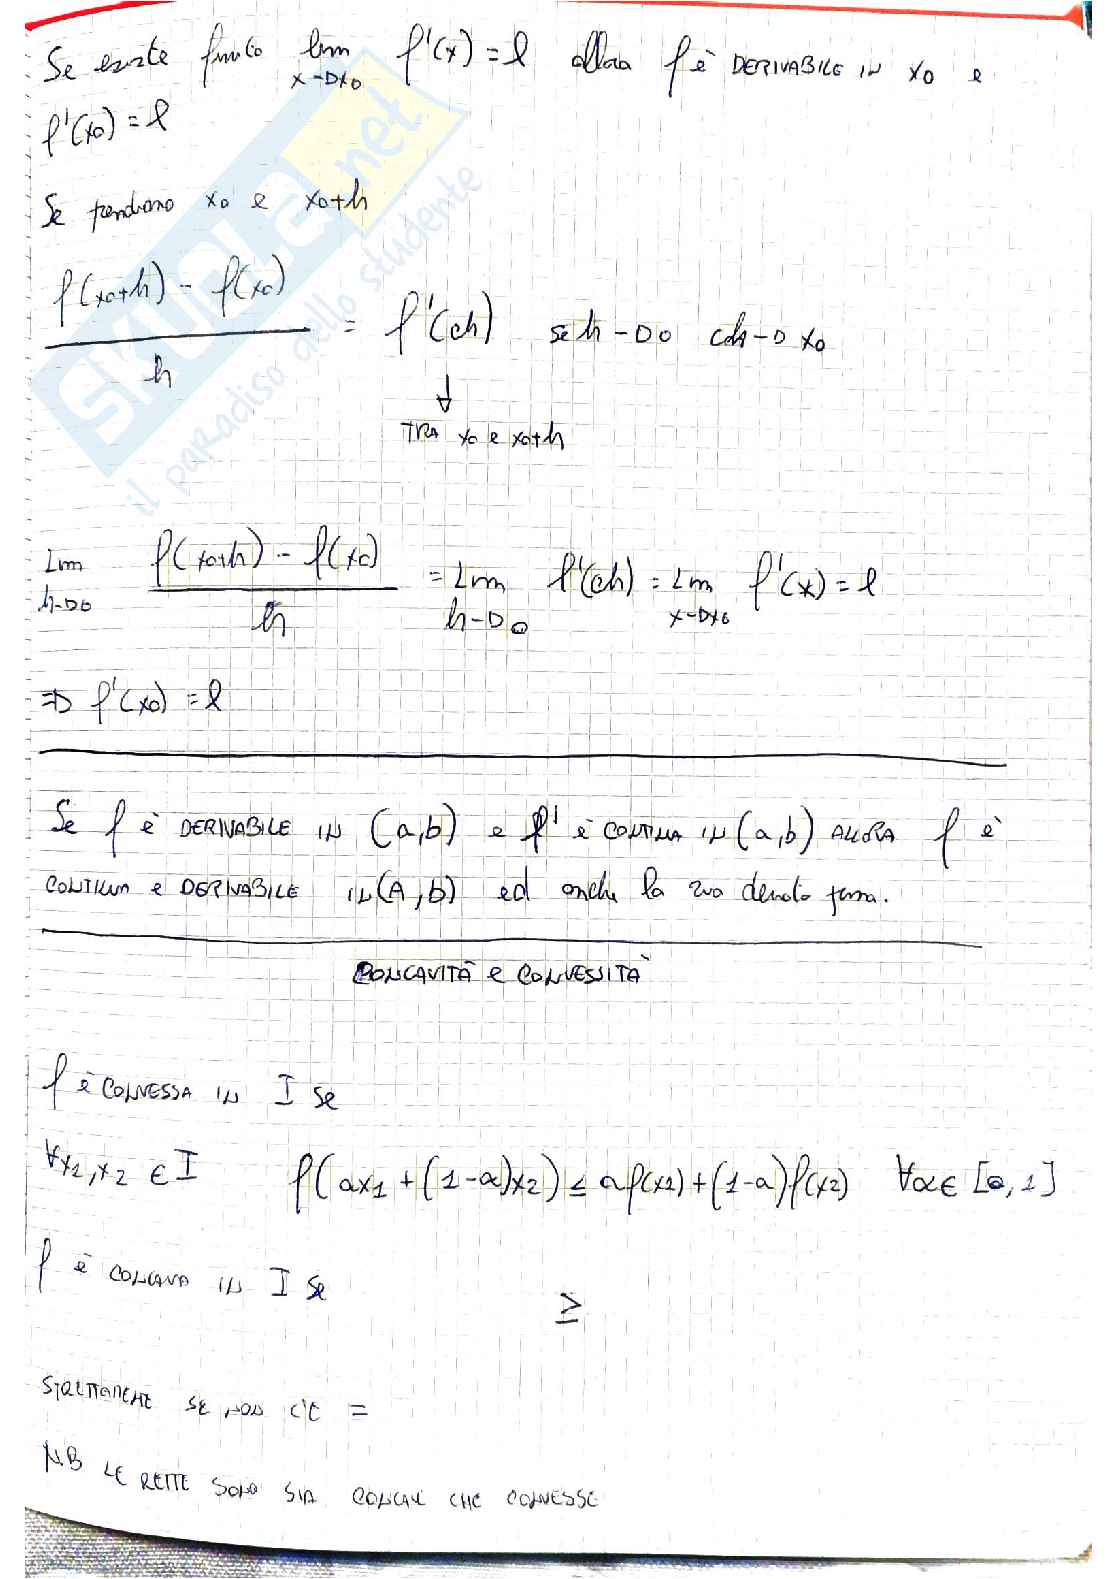 Se esiste finito lim x→x0 f'(x) = l allora f è DERIVABILE IN x0 e
f'(x0) = l
Se prendiamo x0 e x0+h
f(x0+h) - f(x0) / h = f'(ch) se h→0 ch→x0
↓
TRA x0 e x0+h
Lim h→0 f(x0+h) - f(x0) / h = Lim h→0 f'(ch) = Lim x→x0 f'(x) = l
⇒ f'(x0) = l
Se f è DERIVABILE IN (a,b) e f' è CONTINUA IN (a,b) ALLORA f è
CONTINUA e DERIVABILE IN (A,b) ed anche la sua derivata
CONCAVITÀ e CONVESSITÀ
f è CONVESSA IN I se
∀x1,x2 ∈ I f(ax1 + (1-α)x2) ≤ a f(x1) + (1-a) f(x2) ∀α∈ [0,1]
f è CONCAVA IN I se ≥
STRETTAMENTE SE NON C'È =
NB LE RETTE SONO SIA CONCAVE CHE CONVESSE
SKUOLA.net
il paradiso dello studente